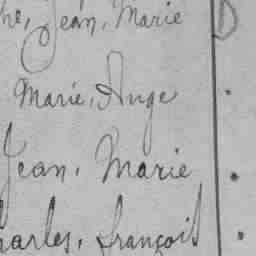 he, Jean, Marie D
Marie, Ange
Jean, Marie
harles, françois